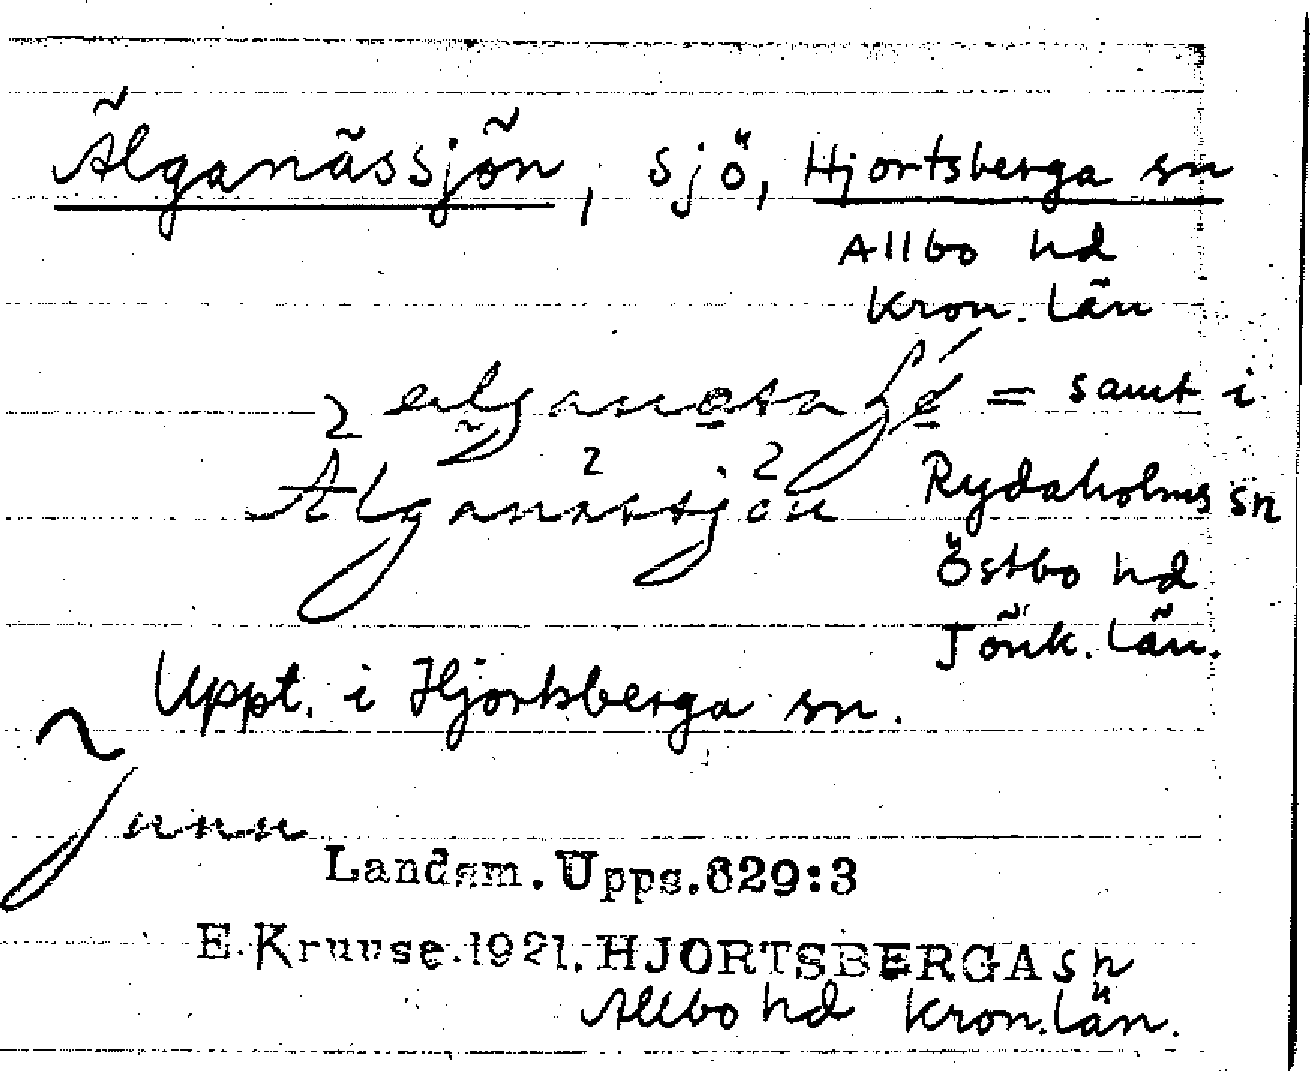 Älganässjön, sjö, Hjortsberga sn
Allbo hd
Kron. län
= samt i
Älganässjön Rydaholms sn
Östbo hd
Jönk. län.
Uppt. i Hjortsberga sn.
Landsm. Upps. 629:3
E. Kruuse. 1921. HJORTSBERGA sn
Allbo hd Kron. län.